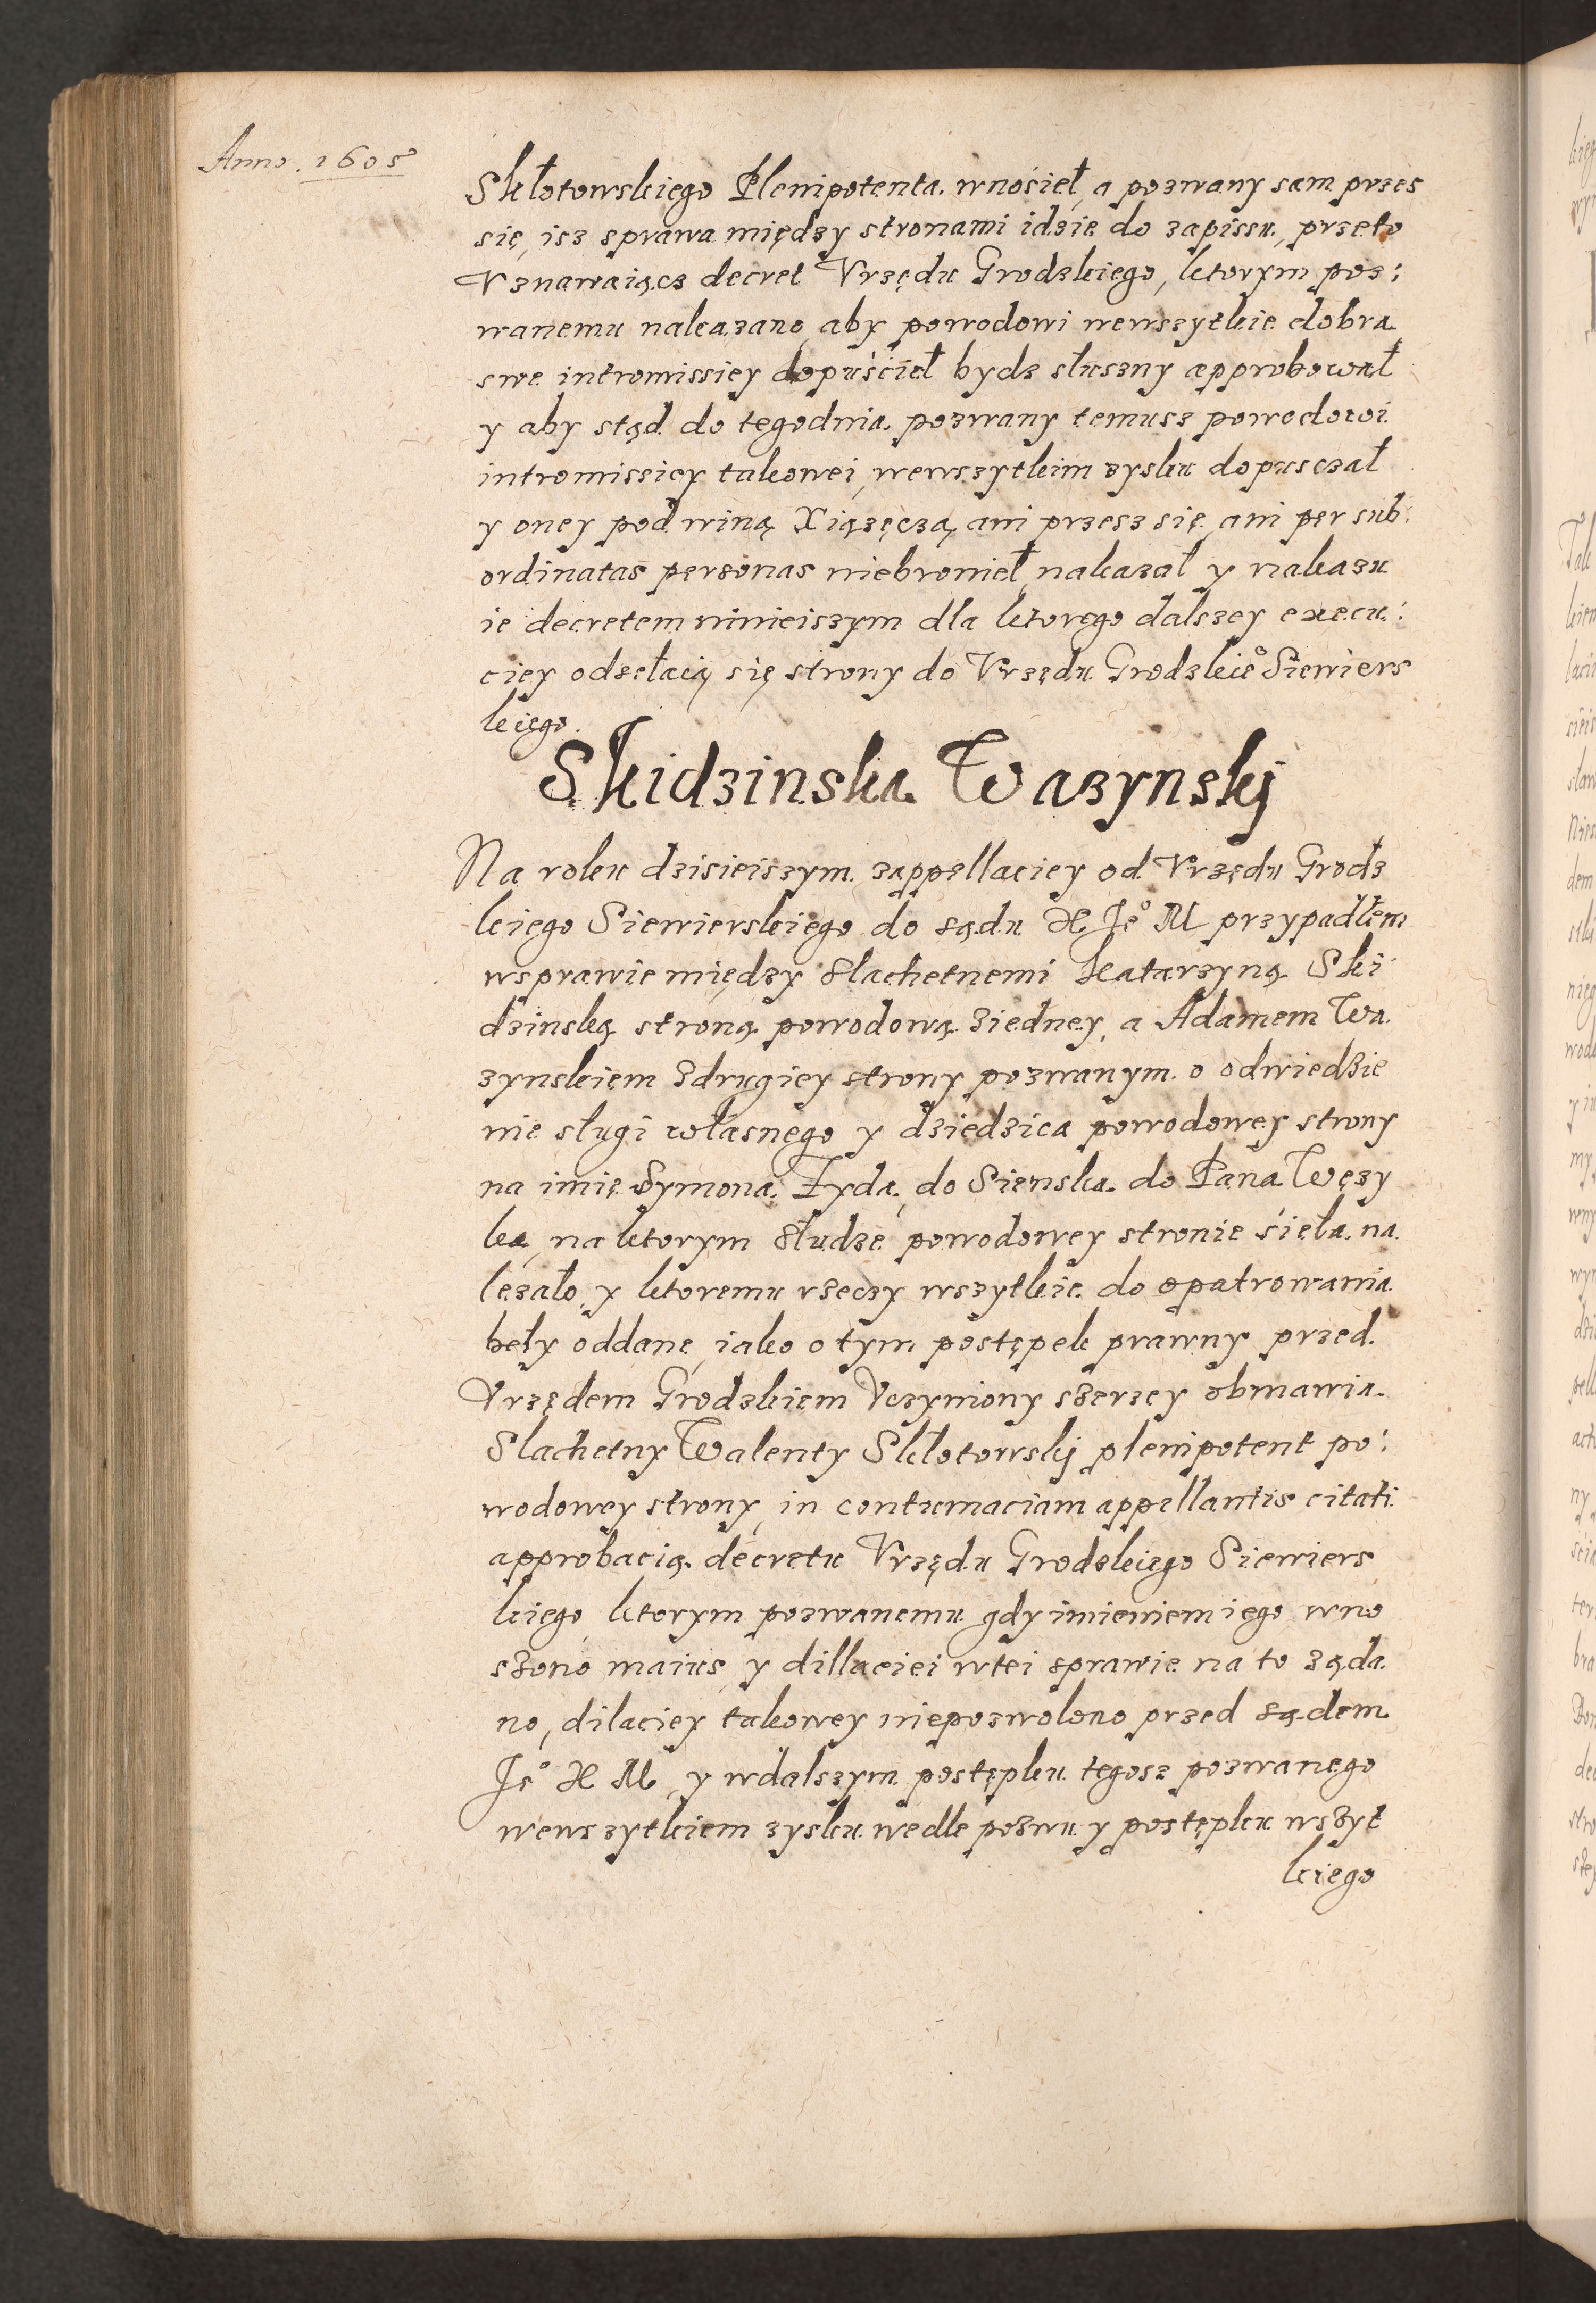 Anno. 1605
Skłotowskiego Plenipotenta. wnośieł, a pozwany sam przes
się, isz sprawa między stronami idzie do zapissu, przeto
Vznawaiącz decret Vrzędu Grodzkiego, ktorym poz:
wanemu nakazano, aby powodowi wewszytkie dobra
swe intromissiey dopuścieł bydz słuszny approbował
y aby stąd do tegodnia. pozwany temusz powodowi
intromissiey takowei, wewszytkim zysku dopusczał
y oney pod winą Xiązęczą, ani przesz się, ani per sub:
ordinatas personas niebronieł, nakazał y nakazu
ie decretem ninieiszym dla ktorego dalszey execu:
ciey odsełaią się strony do Vrzędu Grodzkieº Siewiers
kiego.
Skidzinska Wazynskj
Na roku dzisieiszym. zappellaciey od Vrzędu Grodz
kiego Siewierskiego do sądu X Jeº M przypadłem
wsprawie między Slachetnemi Katarzyną Ski
dzinską stroną powodową ziedney, a Adamem Wa.
zynskiem zdrugiey strony pozwanym. o odwiedzie
nie sługi własnego y dziedzica powodowey strony
na imię Symona. Zyda, do Sienska. do Pana Węzy
ka, na ktorym słudze powodowey stronie śieła. na.
lezało, y ktoremu rzeczy wszytkie do opatrowania
beły oddane, iako o tym postępek prawny przed.
Vrzędem Grodzkiem Vczyniony szerzey obmawia.
Slachetny Walenty Skłotowskj plenipotent po:
wodowey strony, in contumaciam appellantis citati
approbacią decretu Vrzędu Grodzkiego Siewiers
kiego ktorym pozwanemu gdy imieniem iego wno
szono maius, y dillaciei wtei sprawie na to ządа
no, dilaciey takowey niepozwolono przed sądem
Jeº X M, y wdalszym postępku tegosz pozwanego
wewszytkiem zysku wedle pozwu y postępku wszyt
kiego